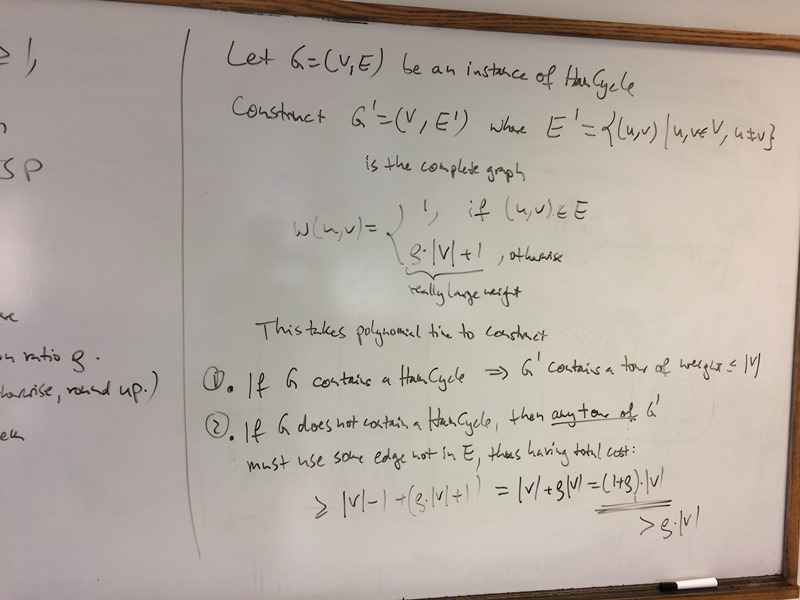 ≥ 1,
SP
on ratio ρ.
otherwise, round up.)
Let G=(V,E) be an instance of HamCycle
Construct G'=(V, E') where E'={(u,v) | u,v∈V, u≠v}
is the complete graph
w(u,v)= { 1, if (u,v)∈E
ρ·|V|+1, otherwise
really large weight
This takes polynomial time to construct
①. If G contains a HamCycle ⇒ G' contains a tour of weight ≤ |V|
②. If G does not contain a HamCycle, then any tour of G'
must use some edge not in E, thus having total cost:
≥ |V|-1+(ρ·|V|+1) = |V|+ρ|V|=(1+ρ)·|V|
>ρ·|V|